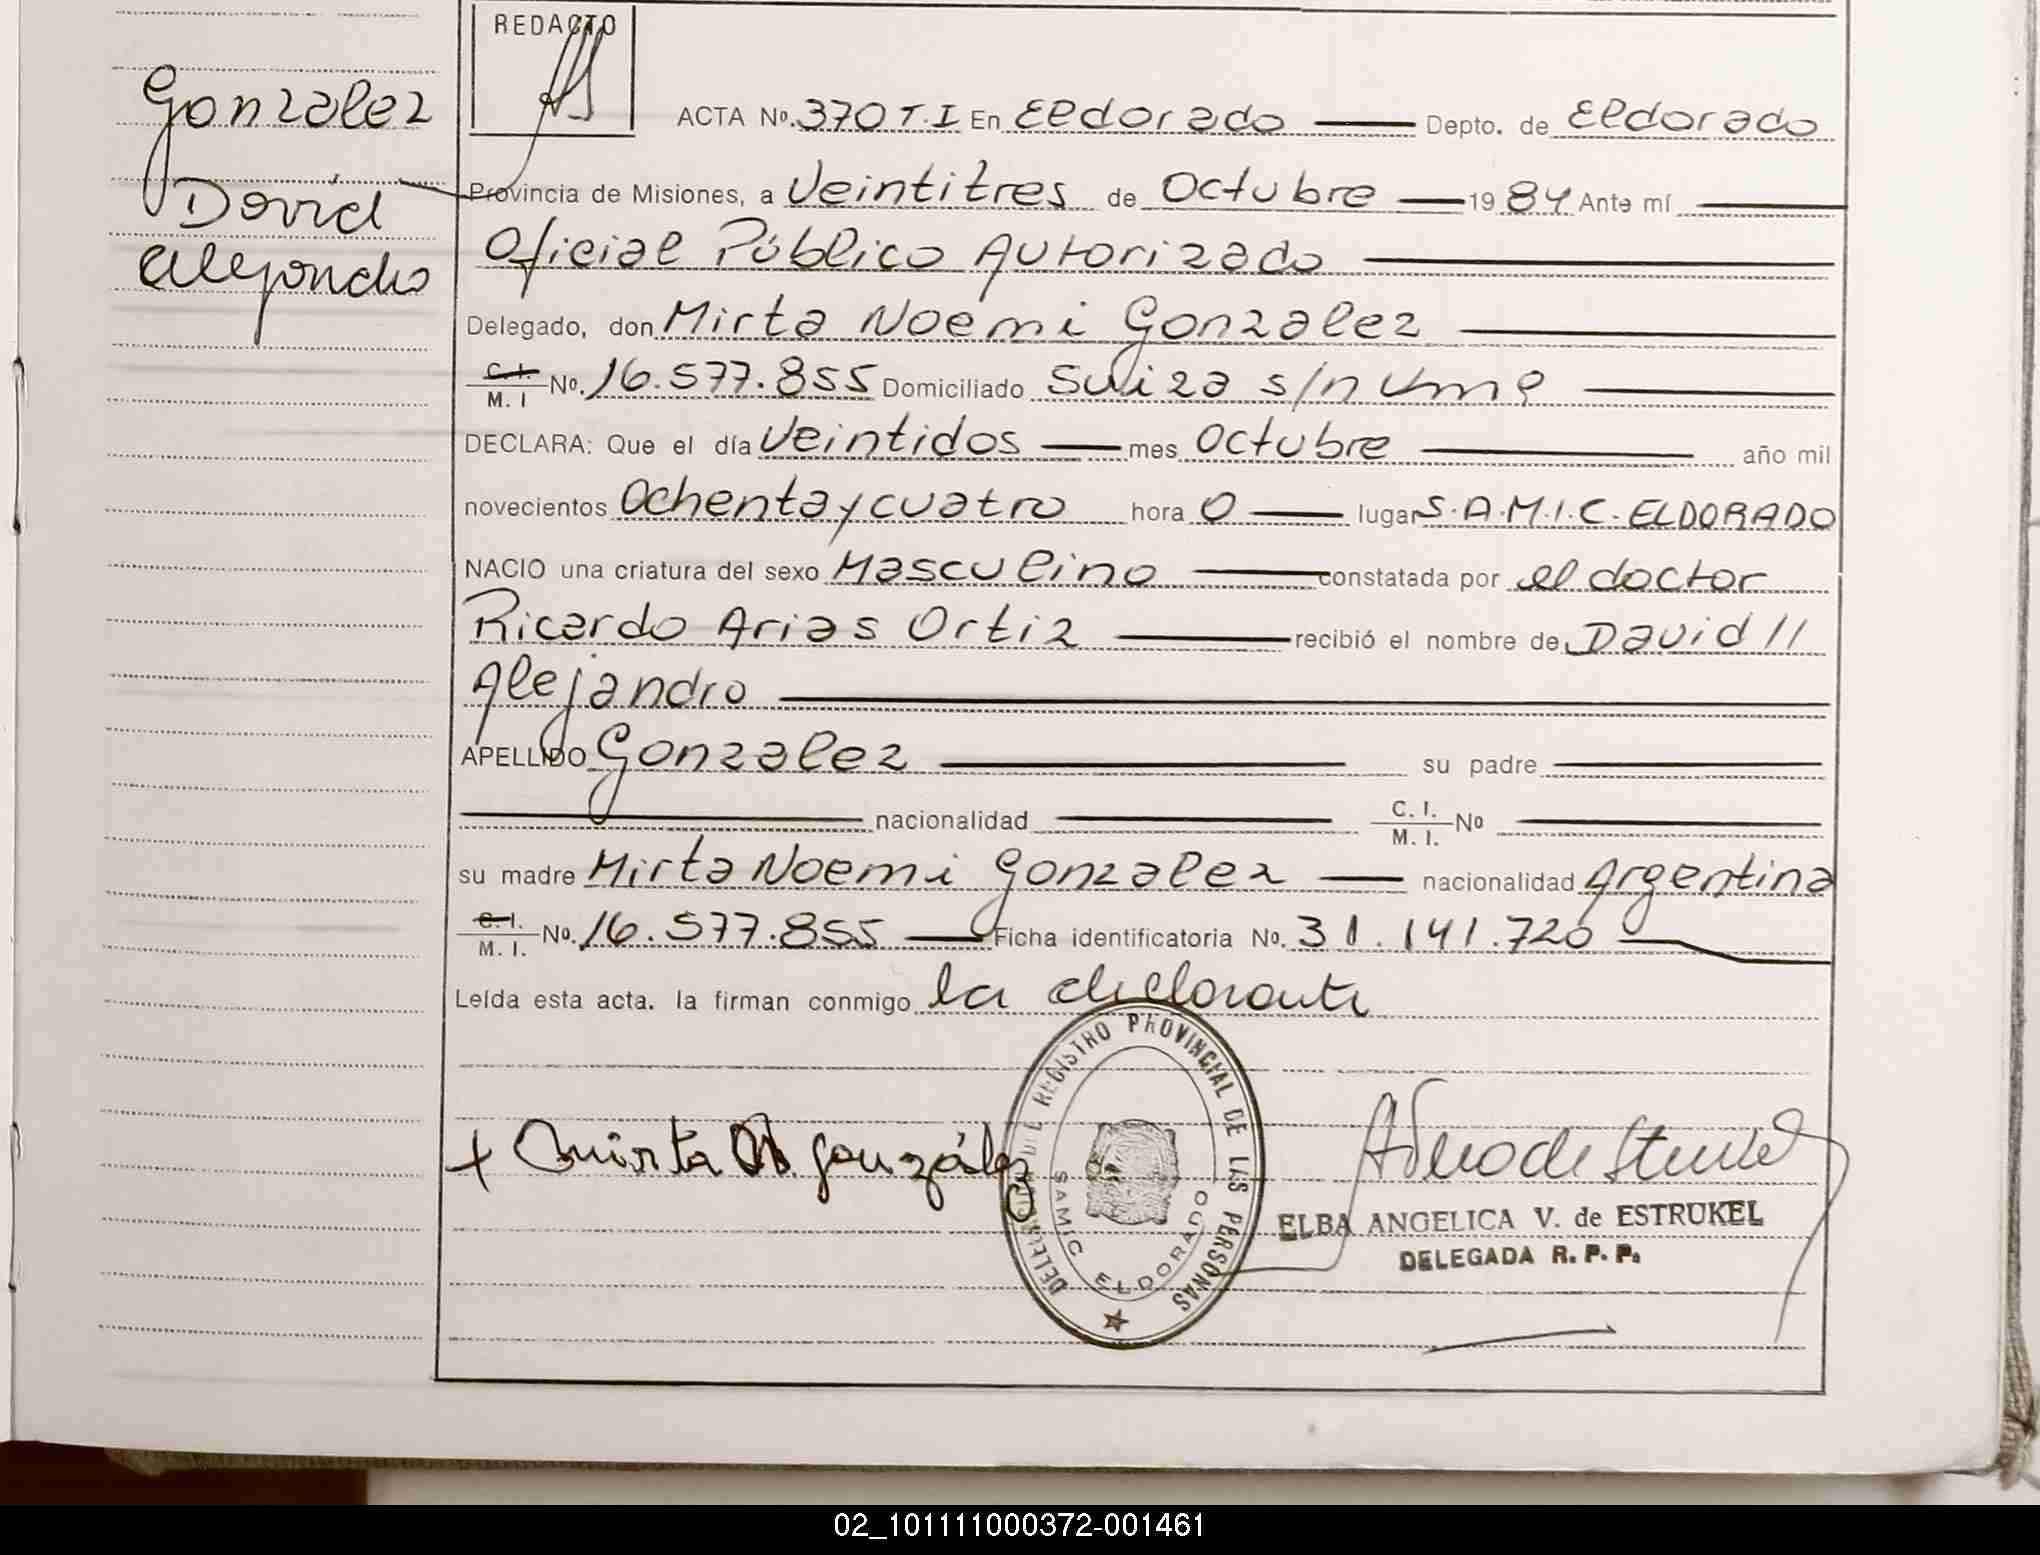 REDACTO
Gonzalez
David
Alejandro
ACTA Nº. 370 T.I En Eldorado Depto. de Eldorado
Provincia de Misiones, a Veintitres de Octubre 1984 Ante mí
Oficial Público Autorizado
Delegado, don Mirta Noemi Gonzalez
C.I. M. I Nº. 16.577.855 Domiciliado Suiza s/n
DECLARA: Que el día Veintidos mes Octubre año mil
novecientos Ochenta y cuatro hora 0 lugar S.A.M.I.C. ELDORADO
NACIO una criatura del sexo Masculino constatada por el doctor
Ricardo Arias Ortiz recibió el nombre de David //
Alejandro
APELLIDO Gonzalez su padre
nacionalidad C. I. M. I. Nº
su madre Mirta Noemi Gonzalez nacionalidad Argentina
C.I. M. I. Nº. 16.577.855 Ficha identificatoria Nº. 31.141.720
Leída esta acta. la firman conmigo la declarante
+ Mirta N. González
DELEGACION DEL REGISTRO PROVINCIAL DE LAS PERSONAS
SAMIC ELDORADO
ELBA ANGELICA V. de ESTRUKEL
DELEGADA R. P. P.
02_101111000372-001461